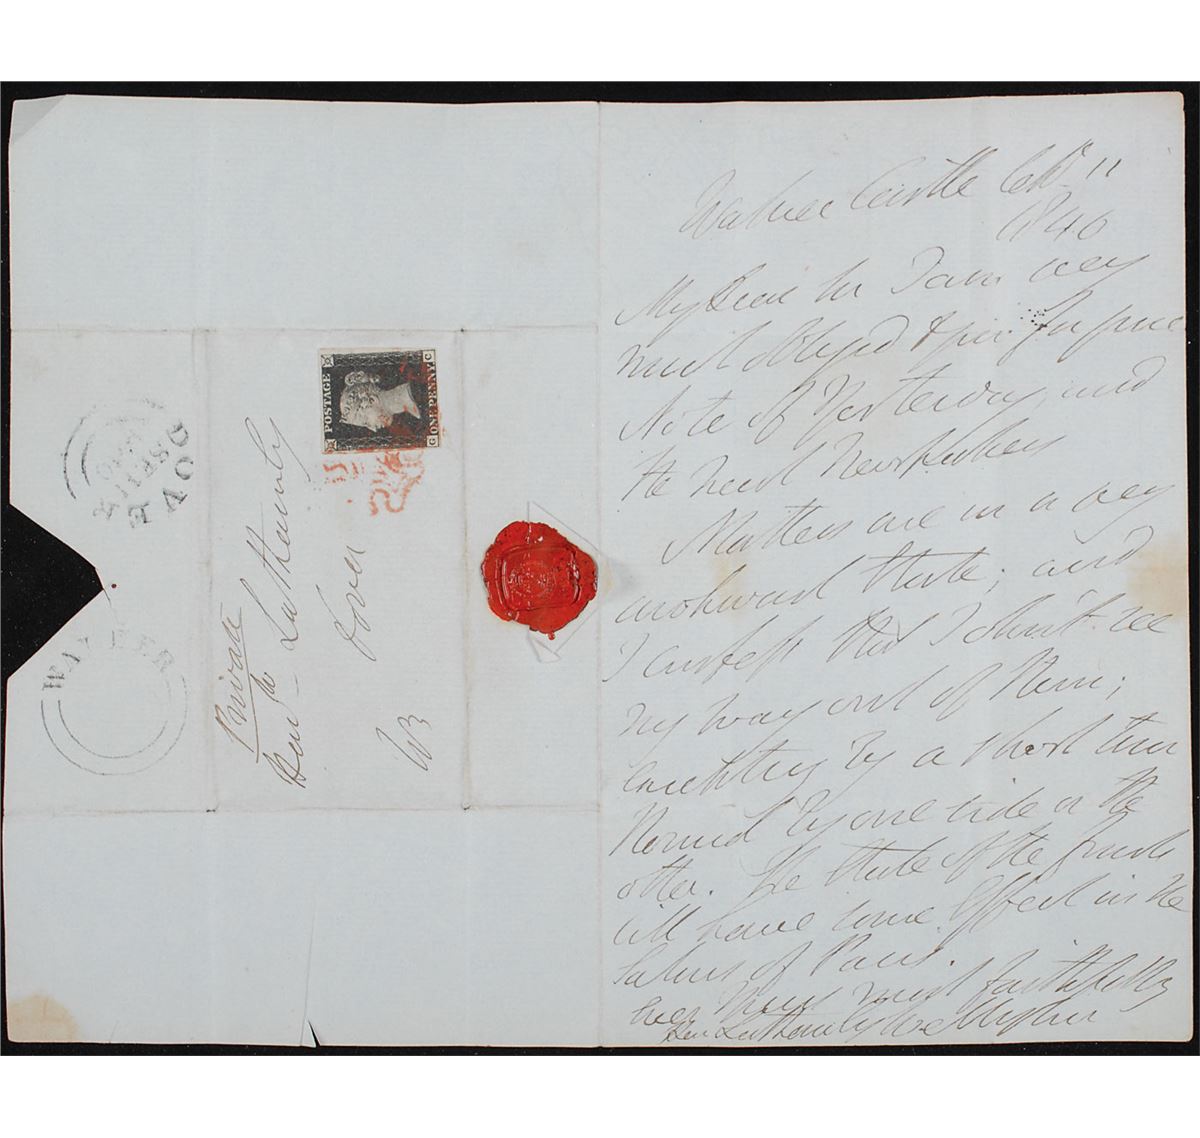 POSTAGE
ONE PENNY
G C
DOVER
SE 11
1840
WALMER
Private
Latham
Dover
Walmer Castle 11
1840
My Dear Sir I am very
much obliged for your
Note of Yesterday, and
the News
Matters are in a very
awkward State; and
I confess that I don't see
my way out of them;
by a short turn
by one side or the
other. The State of the funds
will have some Effect in the
of Paris.
Ever Yours most faithfully
Wellington